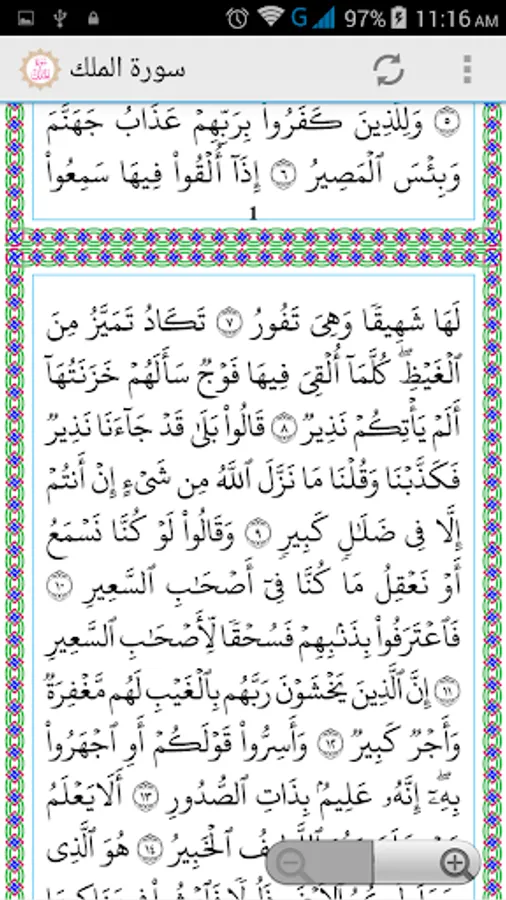 G 97% 11:16 AM
سورة الملك
٥ وَلِلَّذِينَ كَفَرُواْ بِرَبِّهِمْ عَذَابُ جَهَنَّمَ
وَبِئْسَ ٱلْمَصِيرُ ٦ إِذَآ أُلْقُواْ فِيهَا سَمِعُواْ
1
لَهَا شَهِيقًا وَهِيَ تَفُورُ ٧ تَكَادُ تَمَيَّزُ مِنَ
ٱلْغَيْظِۖ كُلَّمَآ أُلْقِيَ فِيهَا فَوْجٌ سَأَلَهُمْ خَزَنَتُهَآ
أَلَمْ يَأْتِكُمْ نَذِيرٌ ٨ قَالُواْ بَلَىٰ قَدْ جَآءَنَا نَذِيرٌ
فَكَذَّبْنَا وَقُلْنَا مَا نَزَّلَ ٱللَّهُ مِن شَيْءٍ إِنْ أَنتُمْ
إِلَّا فِي ضَلَٰلٍ كَبِيرٍ ٩ وَقَالُواْ لَوْ كُنَّا نَسْمَعُ
أَوْ نَعْقِلُ مَا كُنَّا فِيٓ أَصْحَٰبِ ٱلسَّعِيرِ ١٠
فَٱعْتَرَفُواْ بِذَنۢبِهِمْ فَسُحْقًا لِّأَصْحَٰبِ ٱلسَّعِيرِ
١١ إِنَّ ٱلَّذِينَ يَخْشَوْنَ رَبَّهُم بِٱلْغَيْبِ لَهُم مَّغْفِرَةٌ
وَأَجْرٌ كَبِيرٌ ١٢ وَأَسِرُّواْ قَوْلَكُمْ أَوِ ٱجْهَرُواْ
بِهِۦٓۖ إِنَّهُۥ عَلِيمُۢ بِذَاتِ ٱلصُّدُورِ ١٣ أَلَا يَعْلَمُ
ٱلْخَبِيرُ ١٤ هُوَ ٱلَّذِي